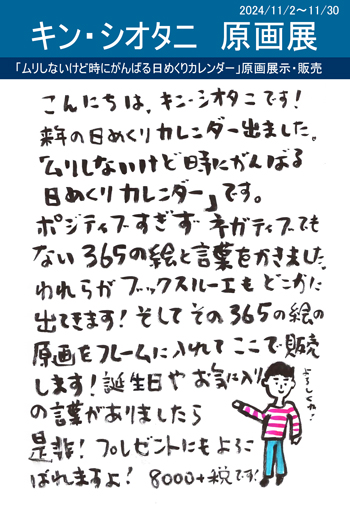 2024/11/2～11/30
キン・シオタニ 原画展
「ムリしないけど時にがんばる日めくりカレンダー」原画展示・販売
こんにちは、キン・シオタニです!
来年の日めくりカレンダー出ました。
「ムリしないけど時にがんばる
日めくりカレンダー」です。
ポジティブすぎずネガティブでも
ない365の絵と言葉をかきました。
われらがブックスルーエもどこかに
出てきます!そしてその365の絵の
原画をフレームに入れてここで販売
します!誕生日やお気に入り
の言葉がありましたら
是非!プレゼントにもよろこ
ばれますよ!8000+税です!
よろしくね!